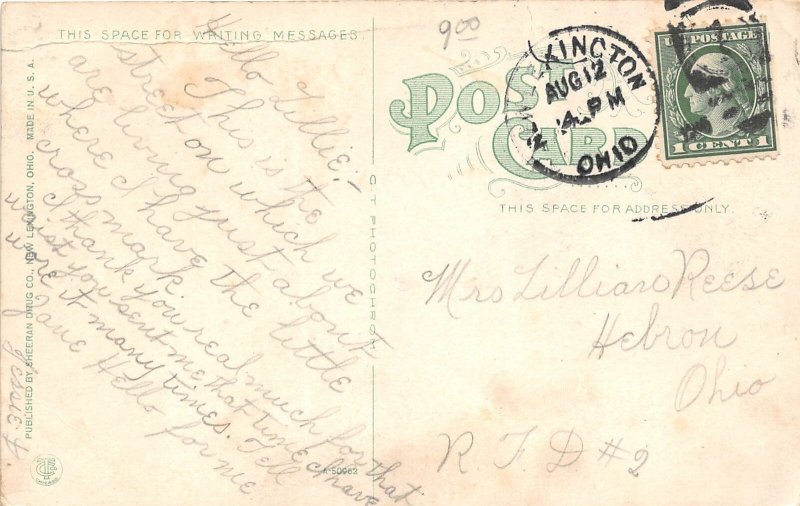 THIS SPACE FOR WRITING MESSAGES
Hello Lillie:-
This is the
street on which we
are living just about
where I have the little
cross mark.
I thank you real much for that
waist you sent me that time I have
wore it many times. Tell
Jane Hello for me
Jessie
PUBLISHED BY SHEERAN DRUG CO., NEW LEXINGTON, OHIO. MADE IN U. S. A.
A-50962
C T PHOTOCHROM
900
POST
CARD
LEXINGTON
AUG 12
4 PM
OHIO
U.S. POSTAGE
1 CENT 1
THIS SPACE FOR ADDRESS ONLY.
Mrs Lillian Reese
Hebron
Ohio
R F D #2